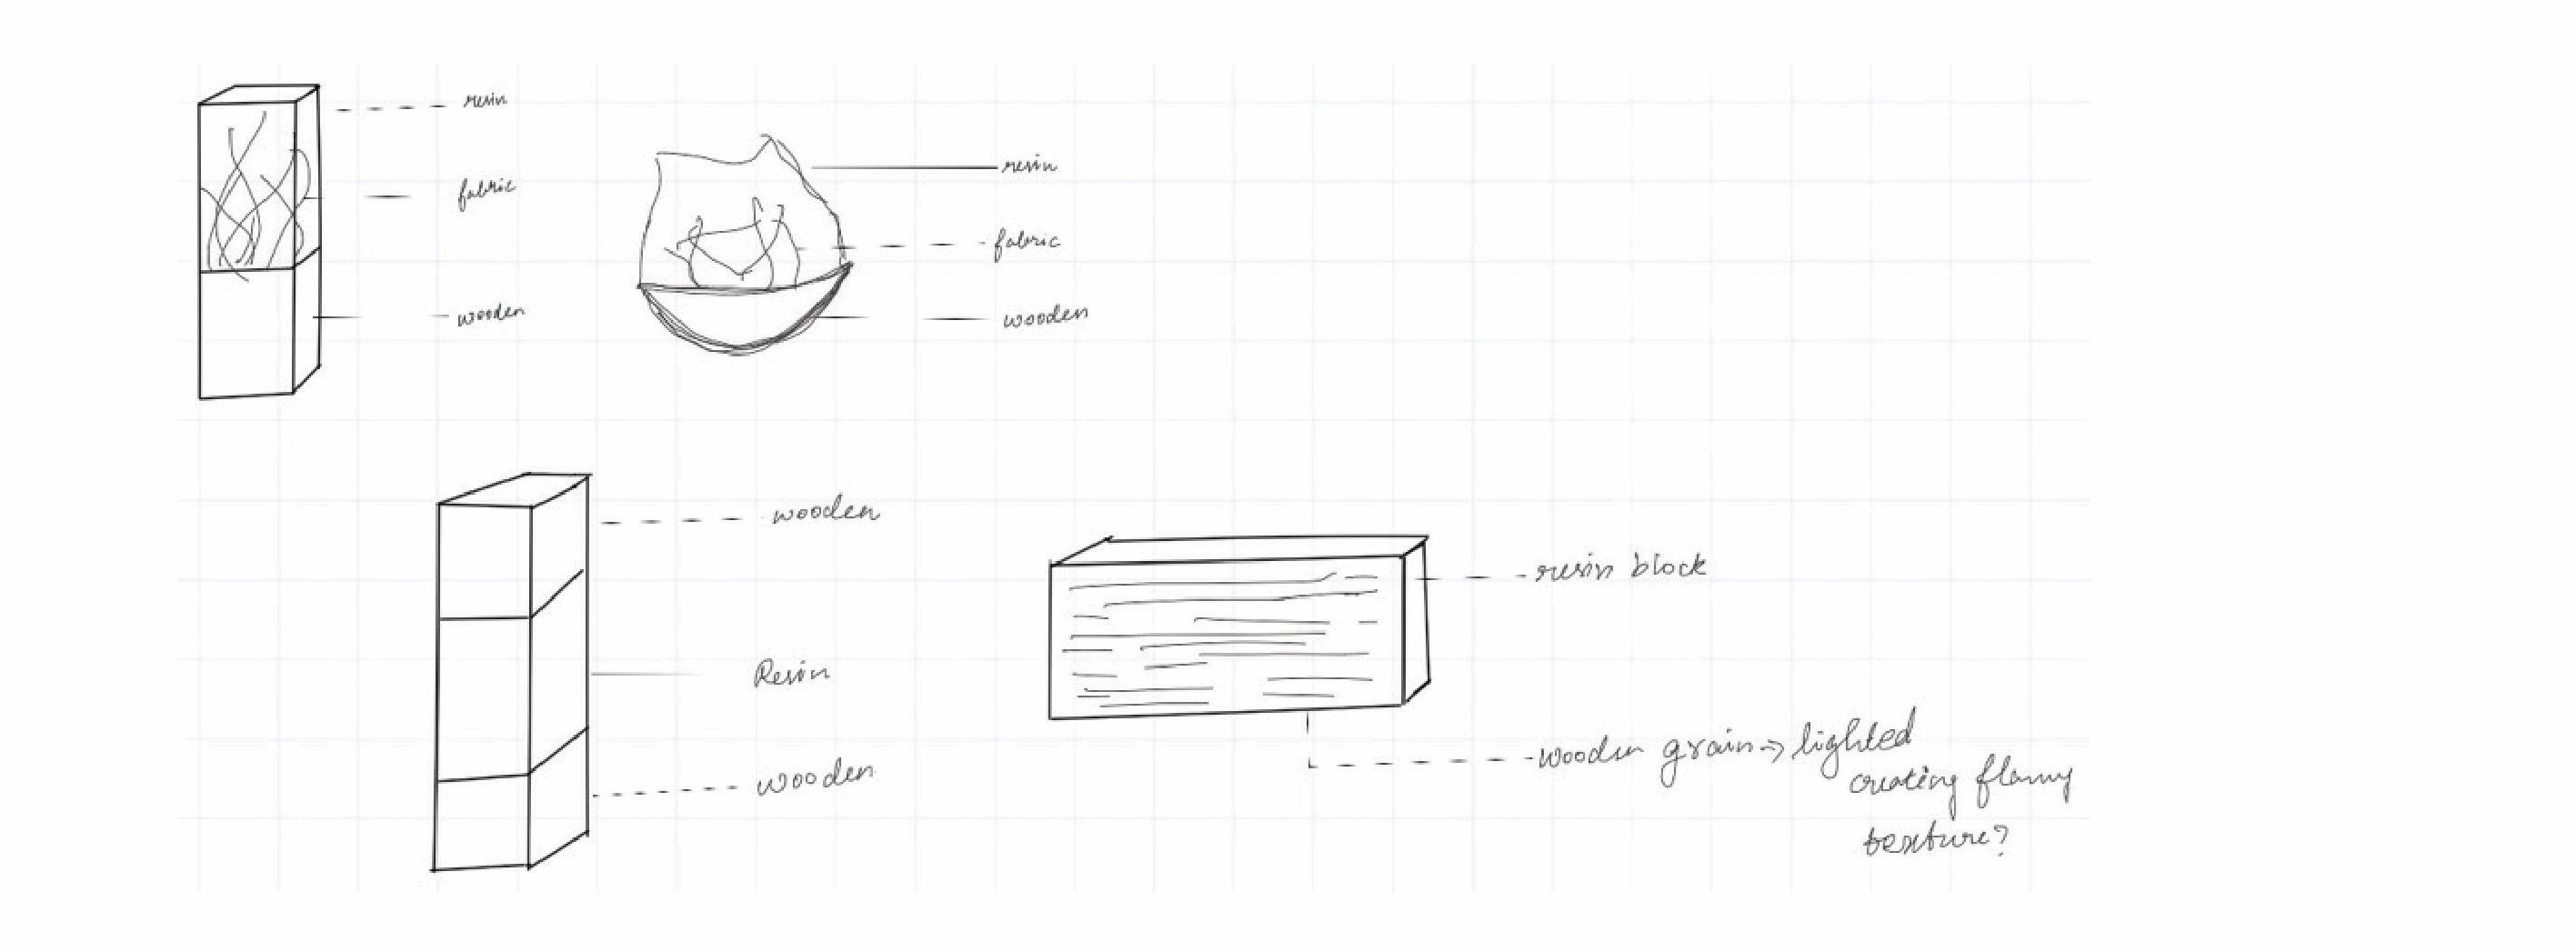 resin
fabric
wooden
resin
fabric
wooden
wooden
Resin
wooden
resin block
wooden grain → lighted
creating flamy
texture?